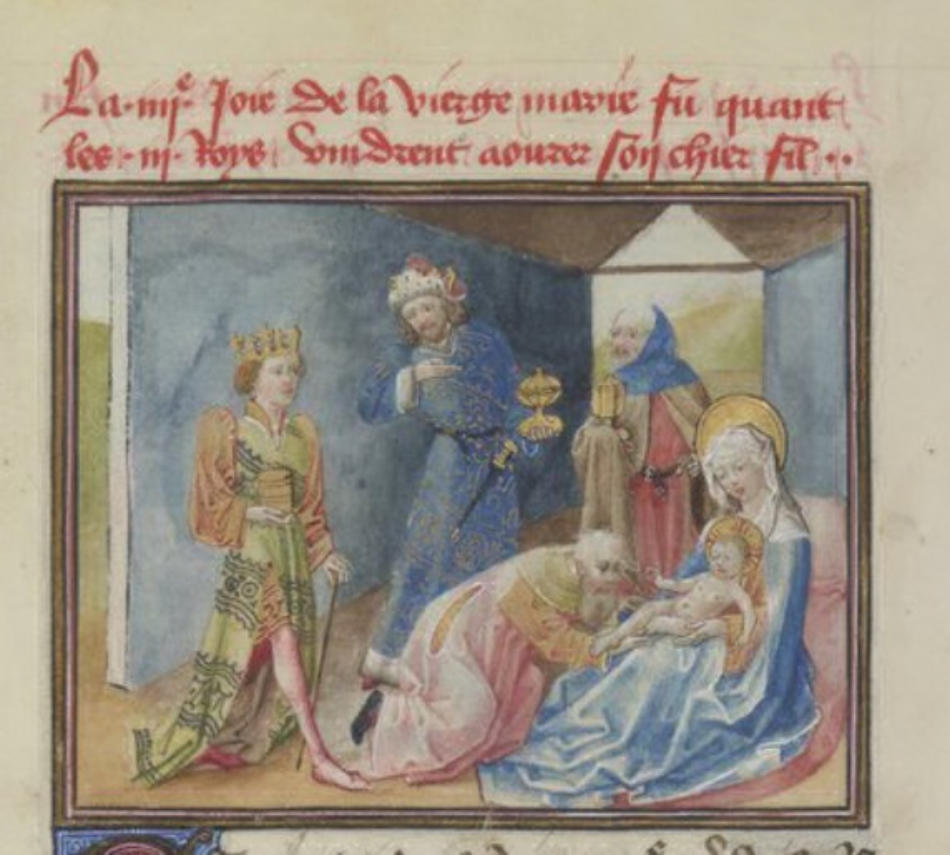 La ·iiij^e· Joie de la vierge marie fu quant
les ·iij· Roys vindrent aourer son chier fil··